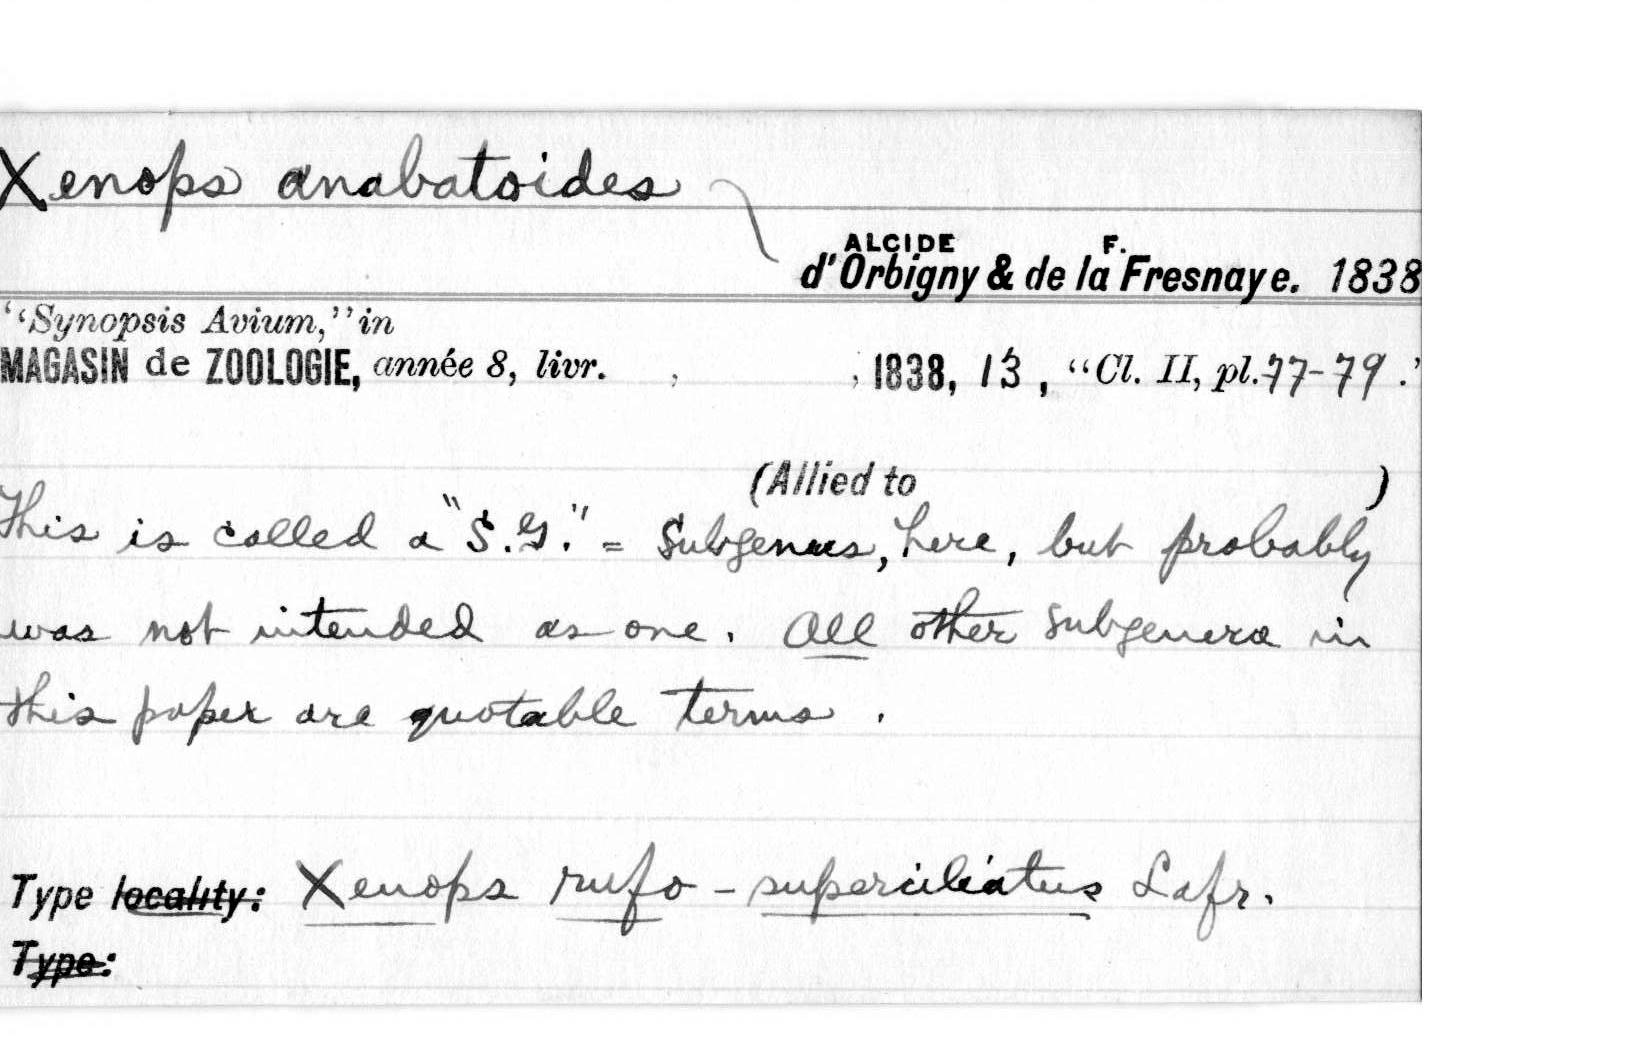 Xenops anabatoides
ALCIDE F.
d'Orbigny & de la Fresnaye. 1838
"Synopsis Avium," in
MAGASIN de ZOOLOGIE, année 8, livr. , , 1838, 13, "Cl. II, pl. 77-79."
(Allied to )
This is called a "S.G." = Subgenus, here, but probably
was not intended as one. All other subgenera in
this paper are quotable terms.
Type locality: Xenops rufo-superciliatus Lafr.
Type: